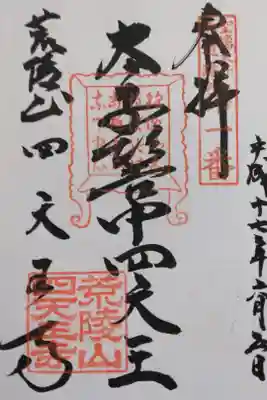 奉拝
平成十七年六月五日
太子髻中四天王
荒陵山四天王寺
荒陵山
四天王寺
一番